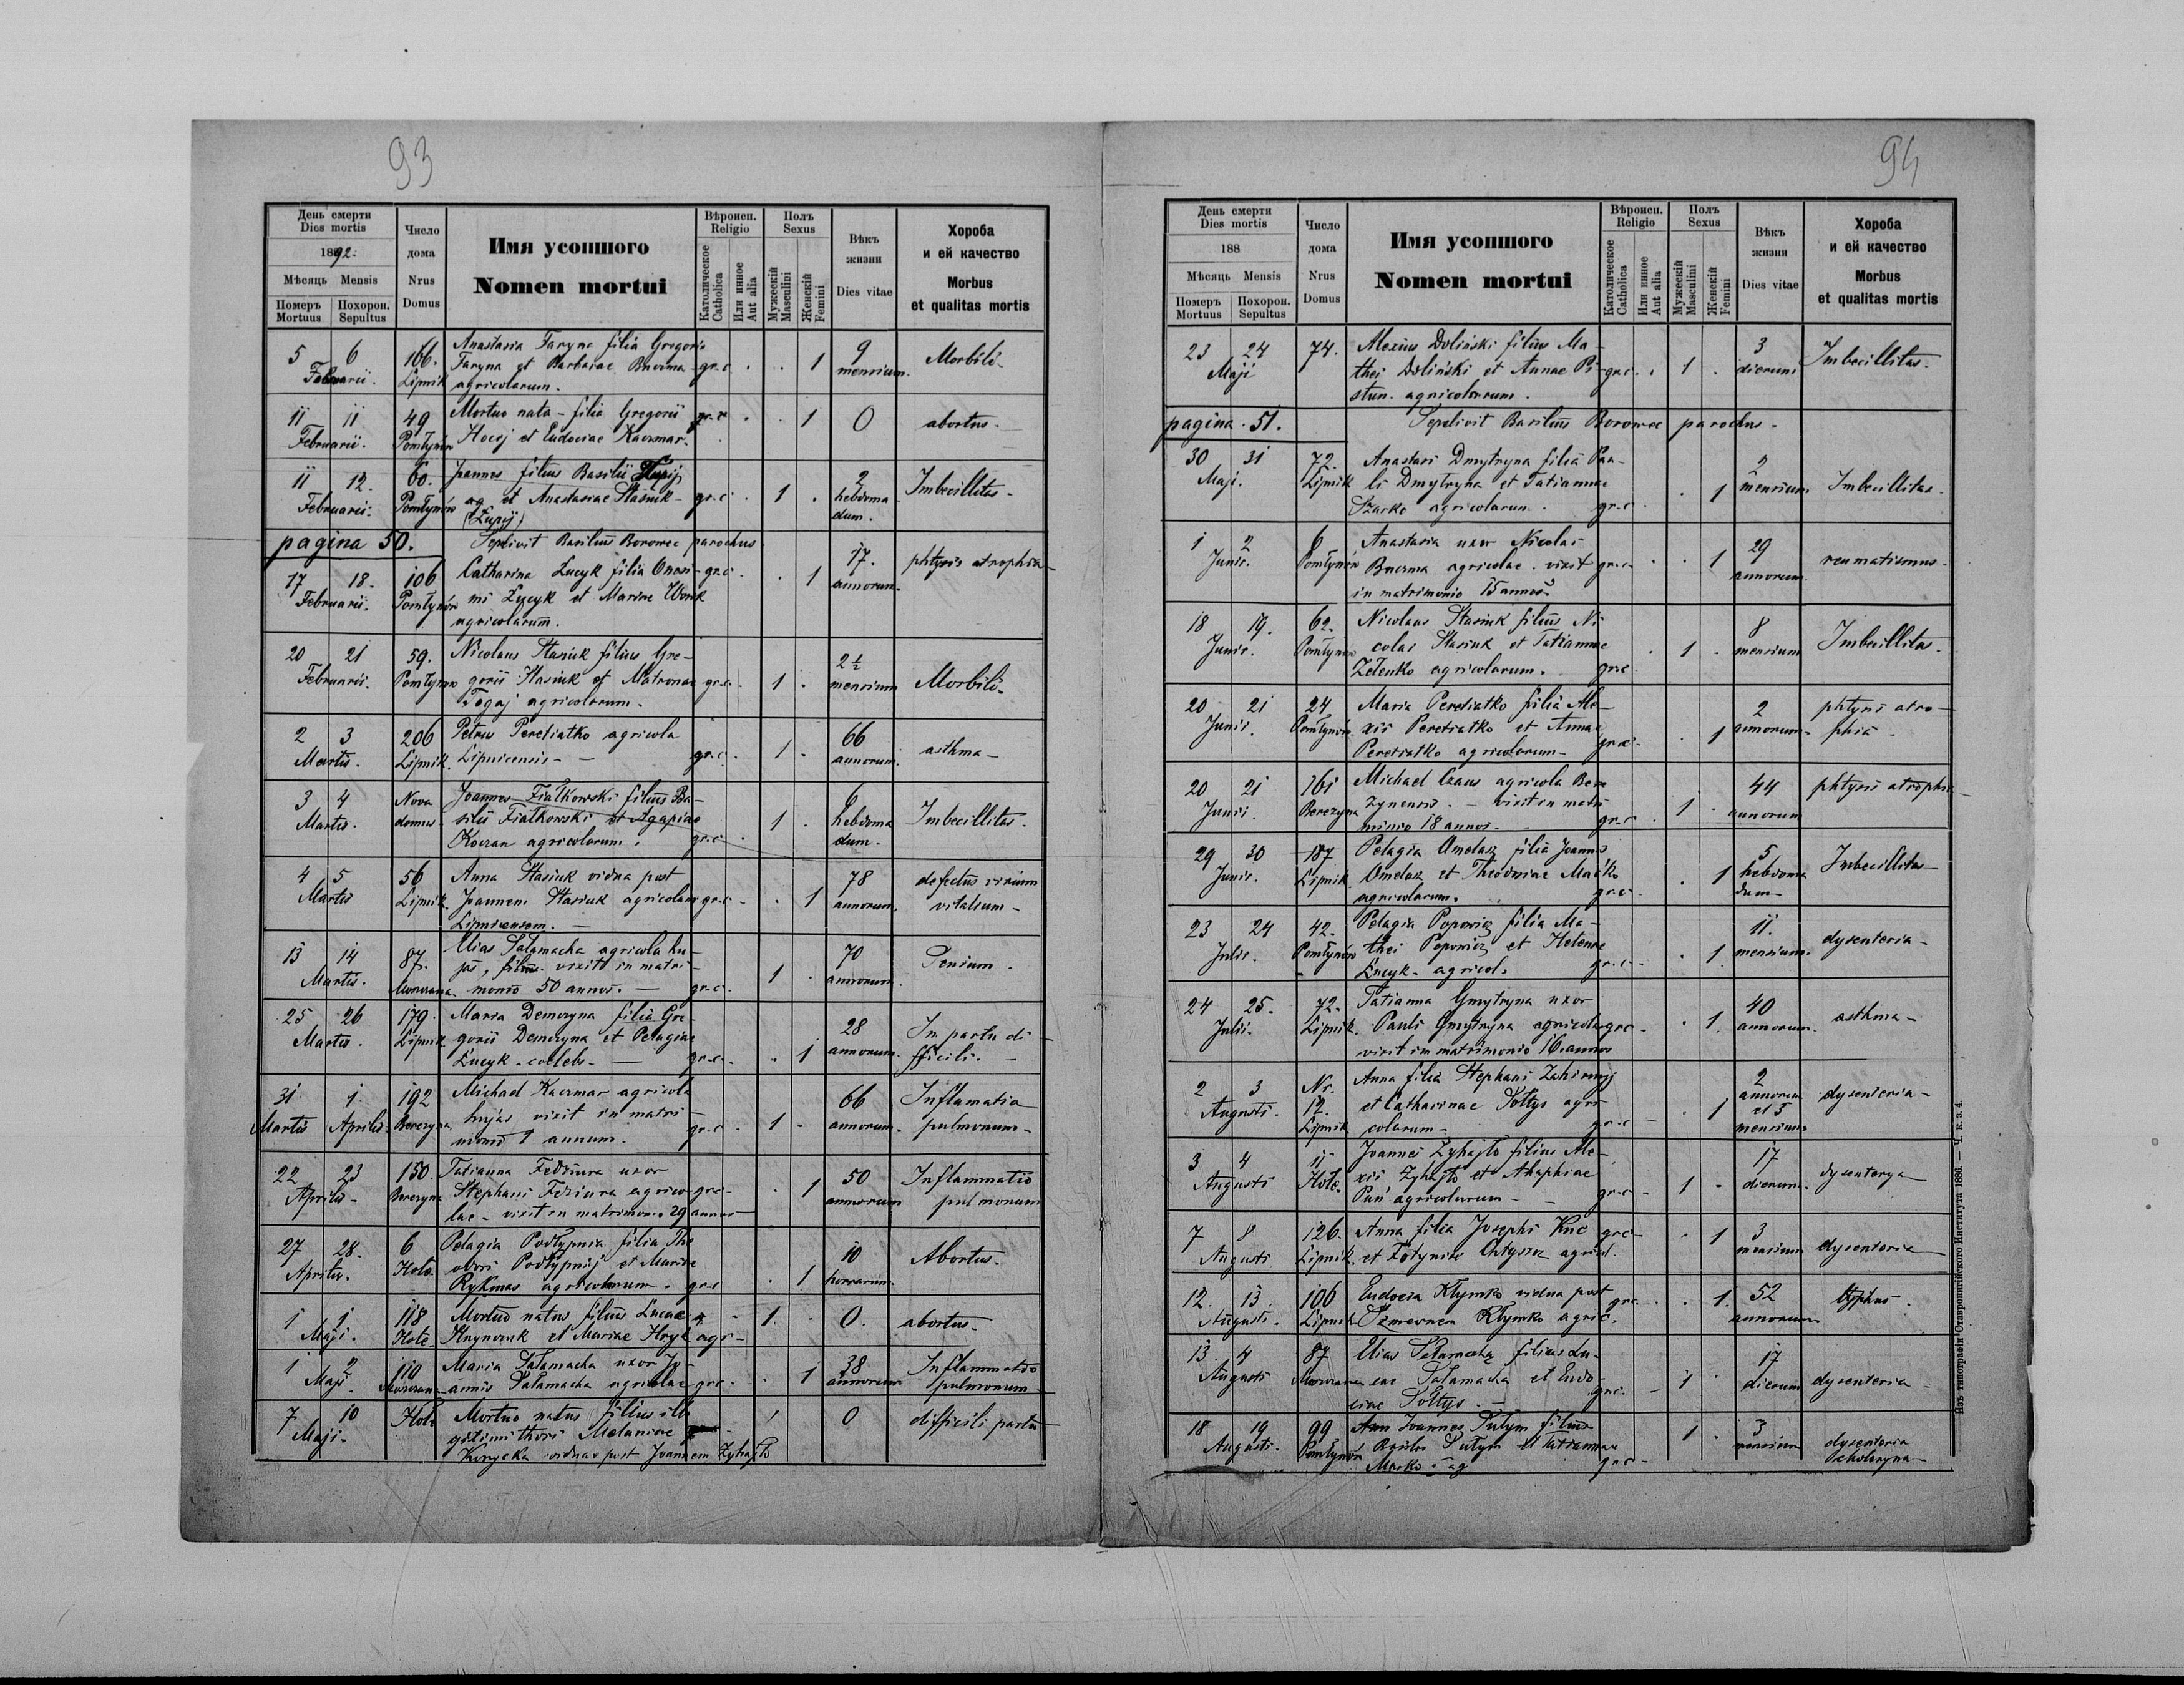 93
День смерти
Dies mortis
1892.
Мѣсяць Mensis
Померъ Mortuus
Похорон. Sepultus
Число дома
Nrus Domus
Имя усопшого
Nomen mortui
Вѣроисп.
Religio
Католическое Catholica
Или инное Aut alia
Полъ
Sexus
Мужескій Masculini
Женскій Femini
Вѣкъ жизни
Dies vitae
Хороба
и ей качество
Morbus
et qualitas mortis
5 6 166. Anastasia Taryna filia Gregorii
Februarii. Lipnik Taryna et Barbarae gr.c. 1 9 mensium. Morbili.
agricolarum.
11 11 49 Mortuo nata filia Gregorii gr.c 1 0 abortus.
Februarii. Pomłynów et Eudociae Kaczmar.
11 12. 60. Joannes filius Basilii
Februarii. Pomłynów ag et Anastasiae Stasiuk gr.c. 1 2 hebdoma Imbecillitas.
(Łupij) dum.
pagina 50. Sepelivit Basilius Borowec parochus
17 18. 106 Catharina Łucyk filia Onesi- gr.c. 1 17. annorum. phtysis atrophia
Februarii. Pomłynów mi Łucyk et Mariae
agricolarum.
20 21 59. Nicolaus Stasiuk filius Gre-
Februarii. Pomłynów gorii Stasiuk et Matronae gr.c. 1 2½ mensium Morbili.
agricolarum.
2 3 206 Petrus Peretiatko agricola 66
Martii. Lipnik. Lipnicensis gr.c. 1 annorum. asthma
3 4 Nova Joannes Fiałkowski filius Ba- 6
Martii. domus silii Fiałkowski et Agapiae 1 hebdoma Imbecillitas.
agricolarum. gr.c dum.
4 5 56 Anna Stasiuk vidua post 78 defectus virium
Martii Lipnik. Joannem Stasiuk agricolam gr.c 1 annorum. vitalium
Lipnicensem.
13 14 87. Elias Sałamacha agricola hu- 70
Martii. jas, filius vixit in matri- 1 annorum.
monio 50 annos. gr.c.
25 26 179. Maria Demczyna filia Gre- 28 In partu di-
Martii. Lipnik gorii Demczyna et Pelagiae 1 annorum. fficili.
Łucyk coelebs gr.c.
31 1. 192 Michael Kaczmar agricola 66 Inflamatia
Martii Aprilis Berezyna hujas vixit in matri- 1 annorum. pulmonum
monio 1 annum. gr.c
22 23 150. Tatianna uxor 50 Inflammatio
Aprilis Berezyna Stephani agrico- gr.c 1 annorum pulmonum
lae vixit in matrimonio 29 annos
27 28. 6 Pelagia Podłypnia filia The 10 Abortus.
Aprilis. odori Podłypnij et Mariae 1 horarum.
Rykmas agricolarum. gr.c
1 1. 118 Mortuo natus filius Lucae 1 0. abortus.
Maji. et Mariae agri-
1 2 110 Maria Sałamacha uxor Jo- 1 38 Inflammatio
Maji annis Sałamacha agricolae gr.c. annorum pulmonum
7 10 Mortuo natus filius ille 1 0 difficili partu
Maji. gitimi thori Melaniae
vidnae post Joannem Zyhajło
94
День смерти
Dies mortis
188
Мѣсяць Mensis
Померъ Mortuus
Похорон. Sepultus
Число дома
Nrus Domus
Имя усопшого
Nomen mortui
Вѣроисп.
Religio
Католическое Catholica
Или инное Aut alia
Полъ
Sexus
Мужескій Masculini
Женскій Femini
Вѣкъ жизни
Dies vitae
Хороба
и ей качество
Morbus
et qualitas mortis
23 24 74. Alexius Doliński filius Ma- 3 Imbecillitas.
Maji thei Doliński et Annae Pi- gr.c. 1 dierum
stun. agricolarum.
pagina 51. Sepelivit Basilius Borowec parochus.
30 31 72. Anastasi Dmytryna filia Pau- 2
Maji. Lipnik li Dmytryna et Tatiannae 1 mensium Imbecillitas.
Szarko agricolarum. gr.c
1 2 6 Anastasia uxor Nicolai 29
Junii. Pomłynów agricolae. vixit gr.c. 1 annorum reumatismus.
in matrimonio 15 annos
18 19. 62. Nicolaus Stasiuk filius Ni- 8
Junii. Pomłynów colai Stasiuk et Tatiannae 1 mensium Imbecillitas.
Zełenko agricolarum. gr.c
20 21 24 Maria Peretiatko filia Ale- 2 phtysis atro-
Junii. Pomłynów xii Peretiatko et Annae 1 annorum phia
Peretiatko agricolarum gr.c
20 21 161 Michael agricola Bere 44 phtysis atrophia
Junii. Berezyna zynensis. vixit in matri 1 annorum
monio 18 annos. gr.c
29 30 187 Pelagia Omelasz filia Joannis 5 Imbecillitas
Junii. Lipnik Omelasz et Theodosiae Maćko 1 hebdoma
agricolarum. gr.c dum
23 24 42. Pelagia Popowicz filia Ma- 11.
Julii. Pomłynów thei Popowicz et Helenae 1 mensium. dysenteria
Łucyk agricol. gr.c
24 25. 72. Tatianna Dmytryna uxor 40
Julii. Lipnik. Pauli Dmytryna agricolae gr.c 1. annorum. asthma
vixit in matrimonio 16 annos
2 3 Nr. Anna filia Stephani 2
Augusti. 12. et Catharinae Sołtys agri 1 annorum dysenteria
Lipnik colarum gr.c et 5 mensium
3 4 Joannes Zyhajło filius Ale- 17
Augusti xii Zyhajło et Ahaphiae 1 dierum. dysenterya
Pań agricolarum gr.c
7 8 126. Anna filia Josephi Kuc gr.c 1 3
Augusti Lipnik. et agricol. mensium dysenteria
12. 13. 106 Eudocia Kłymko vidua post gr.c. 1. 52 typhus.
Augusti. Lipnik Kłymko agric. annorum
13 4 87 Elias Sałamacha filius Lu- 17
Augusti cae Sałamacha et Eudo- 1 dierum dysenteria
ciae Sołtys. gr.c
18 19 99 Joannes filius 1 3
Augusti. Pomłynów et Tatiannae mensium dysenteria
Maćko ag gr.c
Изъ типографіи Ставропигійского Института 1886. — Ч. к. з. 4.